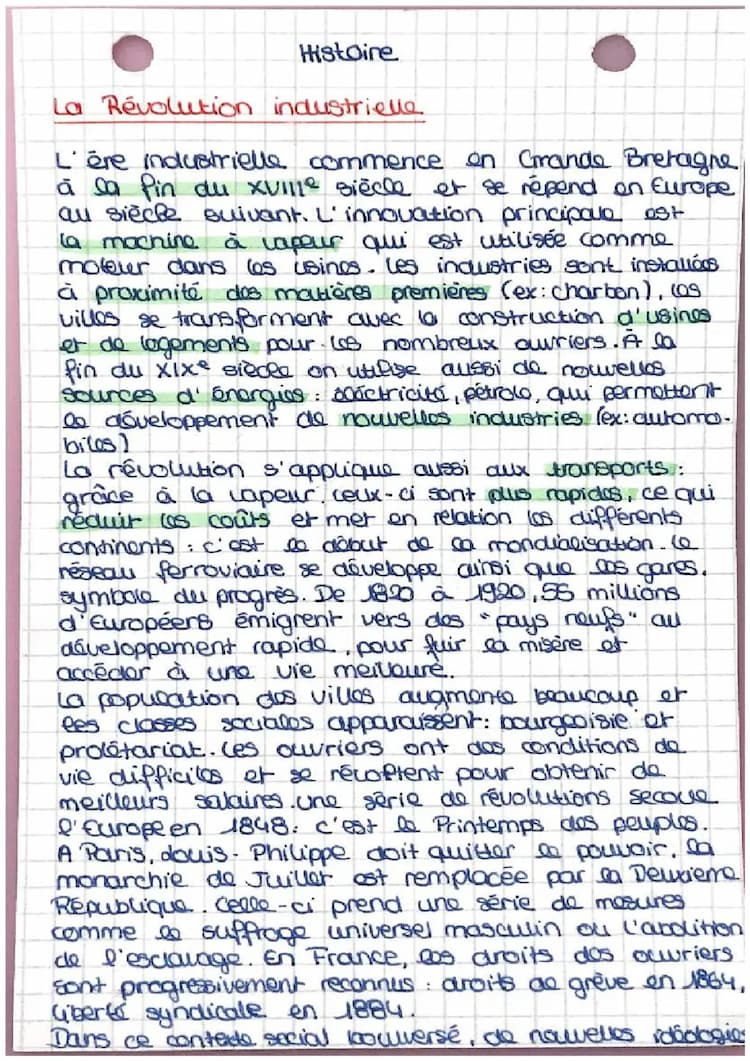 Histoire
La Révolution industrielle
L'ère industrielle commence en Grande Bretagne
à la fin du XVIIIe siècle et se répend en Europe
au siècle suivant. L'innovation principale est
la machine à vapeur qui est utilisée comme
moteur dans les usines. Les industries sont installées
à proximité des matières premières (ex: charbon), les
villes se transforment avec la construction d'usines
et de logements pour les nombreux ouvriers. À la
fin du XIXe siècle on utilise aussi de nouvelles
sources d'énergies : électricité, pétrole, qui permettent
le développement de nouvelles industries (ex: automo-
biles)
La révolution s'applique aussi aux transports :
grâce à la vapeur ceux-ci sont plus rapides, ce qui
réduit les coûts et met en relation les différents
continents : c'est le début de la mondialisation. Le
réseau ferroviaire se développe ainsi que les gares,
symbole du progrès. De 1820 à 1920, 55 millions
d'Européens émigrent vers des "pays neufs" au
développement rapide, pour fuir la misère et
accéder à une vie meilleure.
La population des villes augmente beaucoup et
les classes sociales apparaissent : bourgeoisie et
prolétariat. Les ouvriers ont des conditions de
vie difficiles et se récoltent pour obtenir de
meilleurs salaires. une série de révolutions secoue
l'Europe en 1848: c'est le Printemps des peuples.
A Paris, Louis-Philippe doit quitter le pouvoir. la
monarchie de Juillet est remplacée par la Deuxième
République. Celle-ci prend une série de mesures
comme le suffrage universel masculin ou l'abolition
de l'esclavage. En France, les droits des ouvriers
sont progressivement reconnus : droits de grève en 1864,
liberté syndicale en 1884.
Dans ce contexte social bouversé, de nouvelles idéologies